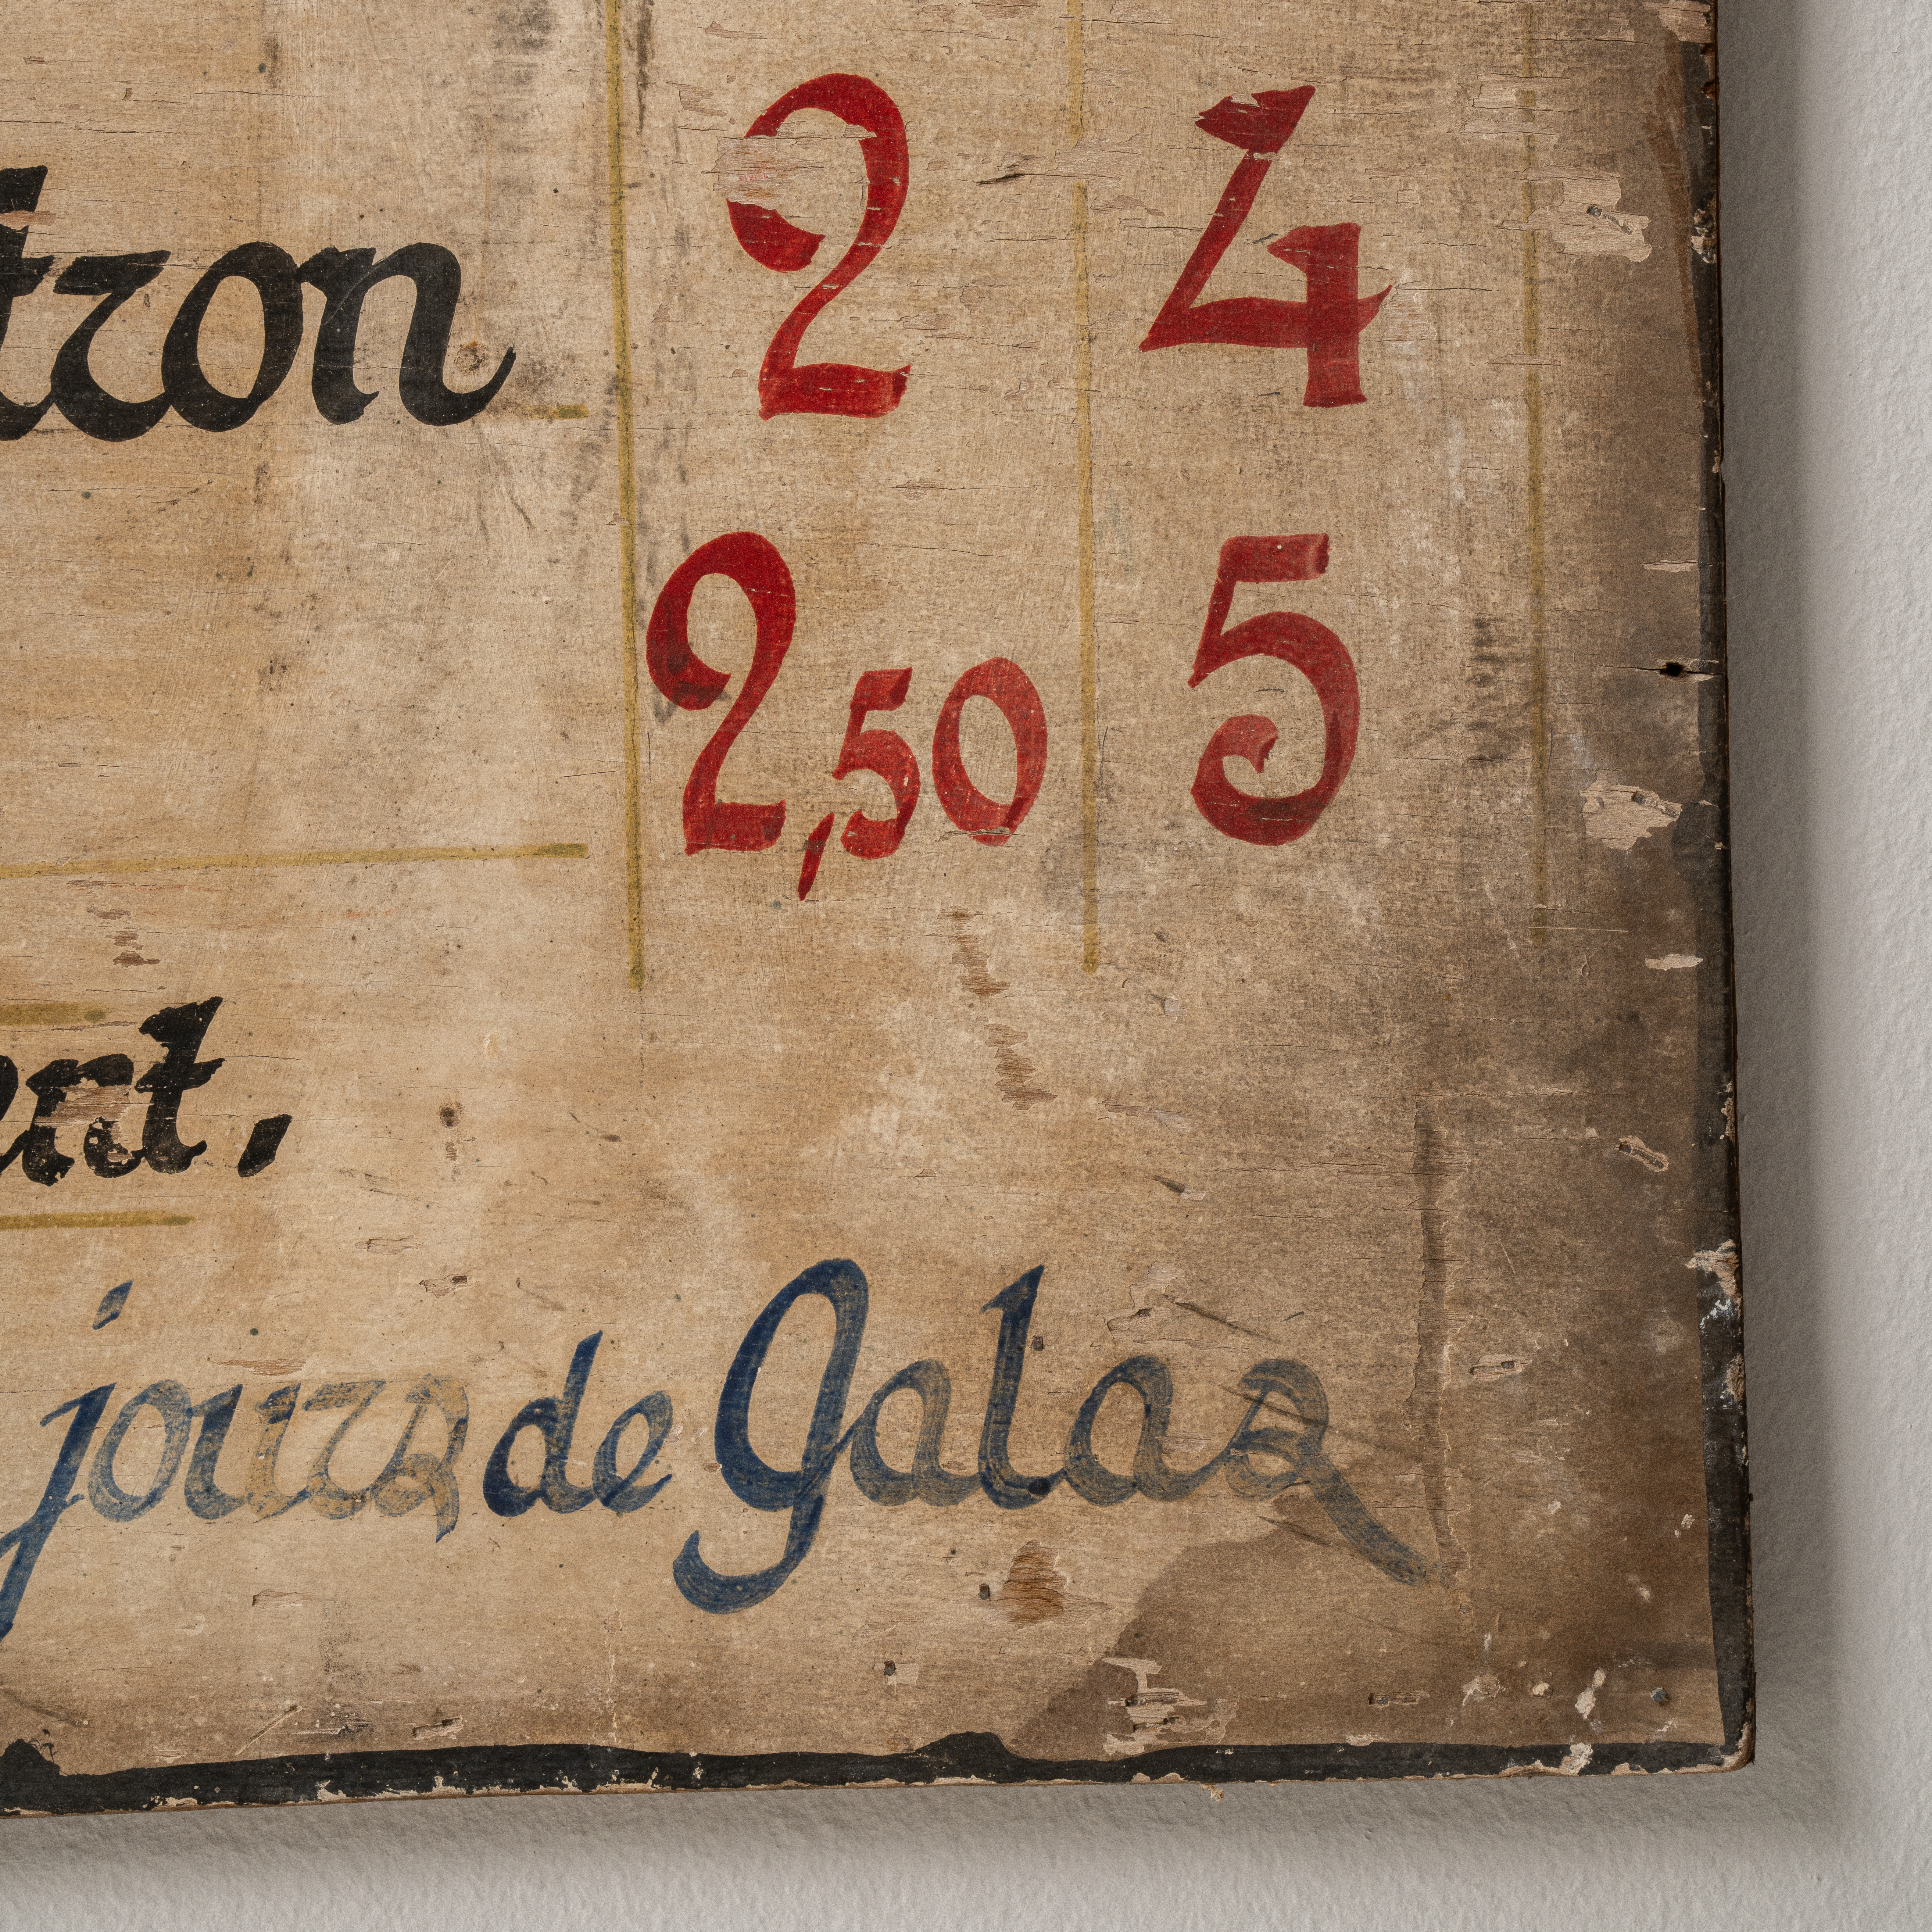 tron 2 4
2,50 5
ent.
jours de Galas